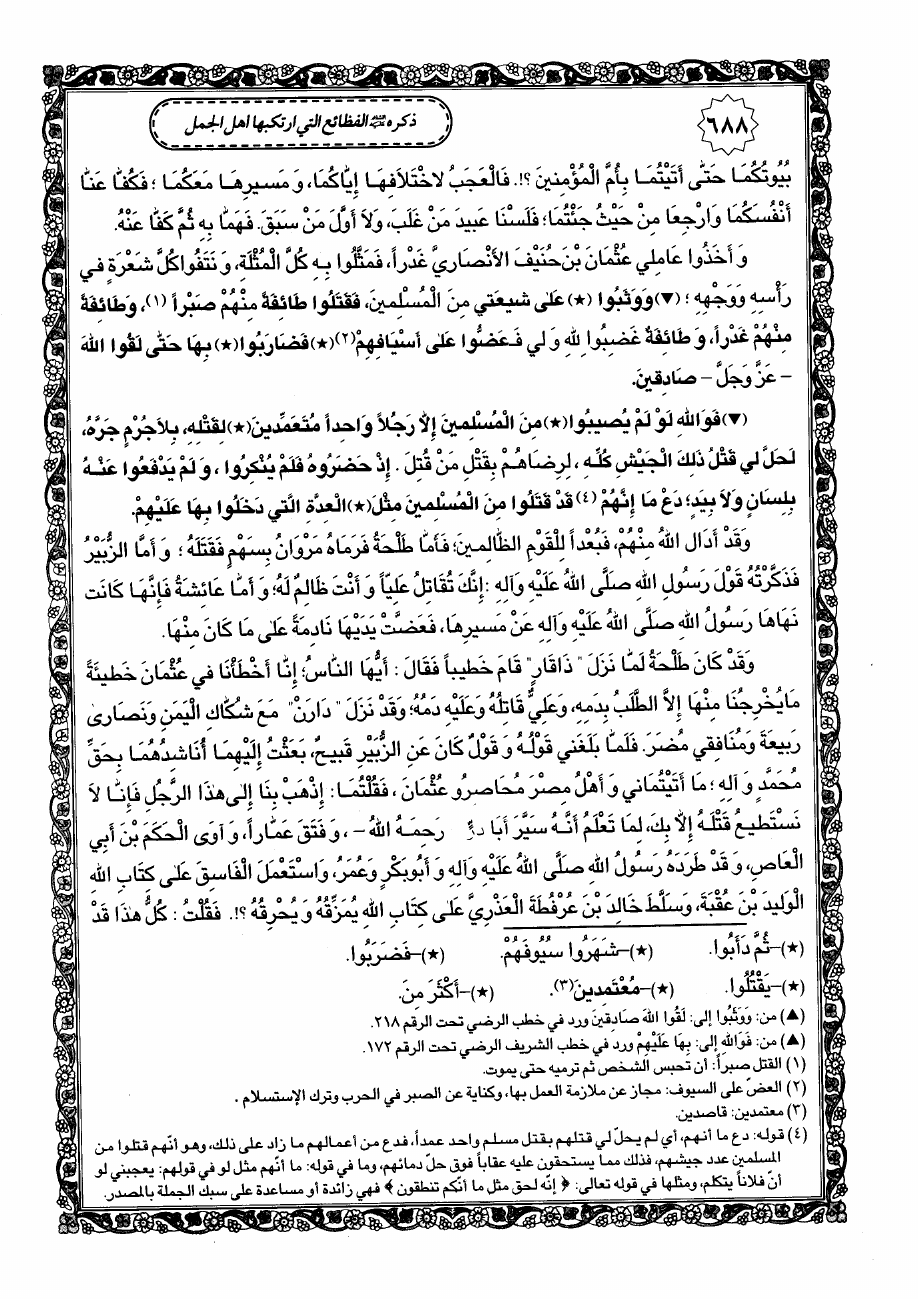 ٦٨٨
ذكره الفظائع التي ارتكبها اهل الجمل
بُيُوتُكُمَا حَتّٰى أَتَيْتُمَا بِأُمِّ الْمُؤْمِنينَ؟!. فَالْعَجَبُ لاخْتِلَافِهَا إِيَّاكُمَا، وَ مَسيرِهَا مَعَكُمَا؛ فَكُفّا عَنّا
أَنْفُسَكُمَا وَارْجِعَا مِنْ حَيْثُ جِئْتُمَا؛ فَلَسْنَا عَبيدَ مَنْ غَلَبَ، وَلَا أَوَّلَ مَنْ سَبَقَ. فَهَمّا بِهِ ثُمَّ كَفّا عَنْهُ.
وَ أَخَذُوا عَامِلي عُثْمَانَ بْنَ حُنَيْفَ الأَنْصَاري غَدْراً، فَمَثَّلُوا بِهِ كُلَّ الْمُثْلَةِ، وَ نَتَفُوا كُلَّ شَعْرَةٍ في
رَأْسِهِ وَوَجْهِهِ؛ (▼) وَوَثَبُوا (★) عَلىٰ شيعَتي مِنَ الْمُسْلِمينَ، فَقَتَلُوا طَائِفَةً مِنْهُمْ صَبْراً (١)، وَطَائِفَةً
مِنْهُمْ غَدْراً، وَ طَائِفَةٌ غَضِبُوا للهِ وَ لي فَعَضُّوا عَلىٰ أَسْيَافِهِمْ(٢)(★) فَضَارَبُوا(★) بِهَا حَتّٰى لَقُوا اللهَ
- عَزَّ وَجَلَّ - صَادِقينَ.
(▼) فَوَاللهِ لَوْ لَمْ يُصيبُوا(★) مِنَ الْمُسْلِمينَ إِلَّا رَجُلاً وَاحِداً مُتَعَمِّدينَ(★) لِقَتْلِهِ، بِلَا جُرْمٍ جَرَّهُ،
لَحَلَّ لي قَتْلُ ذٰلِكَ الْجَيْشِ كُلِّهِ، لِرِضَاهُمْ بِقَتْلِ مَنْ قُتِلَ. إِذْ حَضَرُوهُ فَلَمْ يُنْكِرُوا، وَ لَمْ يَدْفَعُوا عَنْهُ
بِلِسَانٍ وَلَا بِيَدٍ؛ دَعْ مَا إِنَّهُمْ (٤) قَدْ قَتَلُوا مِنَ الْمُسْلِمينَ مِثْلَ(★) الْعِدَّةِ الَّتي دَخَلُوا بِهَا عَلَيْهِمْ.
وَقَدْ أَدَالَ اللهُ مِنْهُمْ، فَبُعْداً لِلْقَوْمِ الظَّالِمينَ؛ فَأَمّا طَلْحَةُ فَرَمَاهُ مَرْوَانُ بِسَهْمٍ فَقَتَلَهُ؛ وَ أَمَّا الزُّبَيْرُ
فَذَكَّرْتُهُ قَوْلَ رَسُولِ اللهِ صَلَّى اللهُ عَلَيْهِ وَآلِهِ: إِنَّكَ تُقَاتِلُ عَلِيّاً وَ أَنْتَ ظَالِمٌ لَهُ؛ وَ أَمّا عَائِشَةُ فَإِنَّهَا كَانَتْ
نَهَاهَا رَسُولُ اللهِ صَلَّى اللهُ عَلَيْهِ وَآلِهِ عَنْ مَسيرِهَا، فَعَضَّتْ يَدَيْهَا نَادِمَةً عَلىٰ مَا كَانَ مِنْهَا.
وَقَدْ كَانَ طَلْحَةُ لَمّا نَزَلَ " ذَاقَارٍ" قَامَ خَطيباً فَقَالَ: أَيُّهَا النّاسُ؛ إِنّا أَخْطَأْنَا في عُثْمَانَ خَطيئَةً
مَا يُخْرِجُنَا مِنْهَا إِلَّا الطَّلَبُ بِدَمِهِ، وَعَلِيٌّ قَاتِلُهُ وَعَلَيْهِ دَمُهُ؛ وَقَدْ نَزَلَ " دَارَنْ" مَعَ شُكّاكِ الْيَمَنِ وَنَصَارىٰ
رَبيعَةَ وَمُنَافِقي مُضَرَ. فَلَمّا بَلَغَني قَوْلُهُ وَ قَوْلٌ كَانَ عَنِ الزُّبَيْرِ قَبيحٌ، بَعَثْتُ إِلَيْهِمَا أُنَاشِدُهُمَا بِحَقِّ
مُحَمَّدٍ وَ آلِهِ؛ مَا أَتَيْتُمَاني وَ أَهْلُ مِصْرَ مُحَاصِرُو عُثْمَانَ، فَقُلْتُمَا: إِذْهَبْ بِنَا إِلىٰ هٰذَا الرَّجُلِ فَإِنّا لَا
نَسْتَطيعُ قَتْلَهُ إِلّا بِكَ، لِمَا تَعْلَمُ أَنَّهُ سَيَّرَ أَبَا ذَرٍّ رَحِمَهُ اللهُ -، وَفَتَقَ عَمّاراً، وَ آوَى الْحَكَمَ بْنَ أَبي
الْعَاصِ، وَ قَدْ طَرَدَهُ رَسُولُ اللهِ صَلَّى اللهُ عَلَيْهِ وَآلِهِ وَ أَبُوبَكْرٍ وَعُمَرُ، وَاسْتَعْمَلَ الْفَاسِقَ عَلىٰ كِتَابِ اللهِ
الْوَليدَ بْنَ عُقْبَةَ، وَسَلَّطَ خَالِدَ بْنَ عُرْفُطَةَ الْعَذَرِيَّ عَلىٰ كِتَابِ اللهِ يُمَزِّقُهُ وَ يُحْرِقُهُ؟!. فَقُلْتُ: كُلُّ هٰذَا قَدْ
(★)-ثُمَّ دَأَبُوا. (★)-شَهَرُوا سُيُوفَهُمْ. (★)-فَضَرَبُوا.
(★)-يَقْتُلُوا. (★)-مُعْتَمِدينَ(٣). (★)-أَكْثَرَ مِنَ.
(▲) من: وَوَثَبُوا إلى: لَقُوا اللهَ صَادِقينَ ورد في خطب الرضي تحت الرقم ٢١٨.
(▲) من: فَوَاللهِ إلى: بِهَا عَلَيْهِمْ ورد في خطب الشريف الرضي تحت الرقم ١٧٢.
(١) القتل صبراً: أن تحبس الشخص ثم ترميه حتى يموت.
(٢) العضّ على السيوف: مجاز عن ملازمة العمل بها، وكناية عن الصبر في الحرب وترك الإستسلام.
(٣) معتمدين: قاصدين.
(٤) قوله: دع ما أنهم، أي لم يحلّ لي قتلهم بقتل مسلم واحد عمداً، فدع من أعمالهم ما زاد على ذلك، وهو أنّهم قتلوا من
المسلمين عدد جيشهم، فذلك مما يستحقون عليه عقاباً فوق حلّ دمائهم، وما في قوله: ما أنّهم مثل لو في قولهم: يعجبني لو
أنّ فلاناً يتكلم، ومثلها في قوله تعالى: ﴿ إنّه لحق مثل ما أنّكم تنطقون ﴾ فهي زائدة أو مساعدة على سبك الجملة بالمصدر.